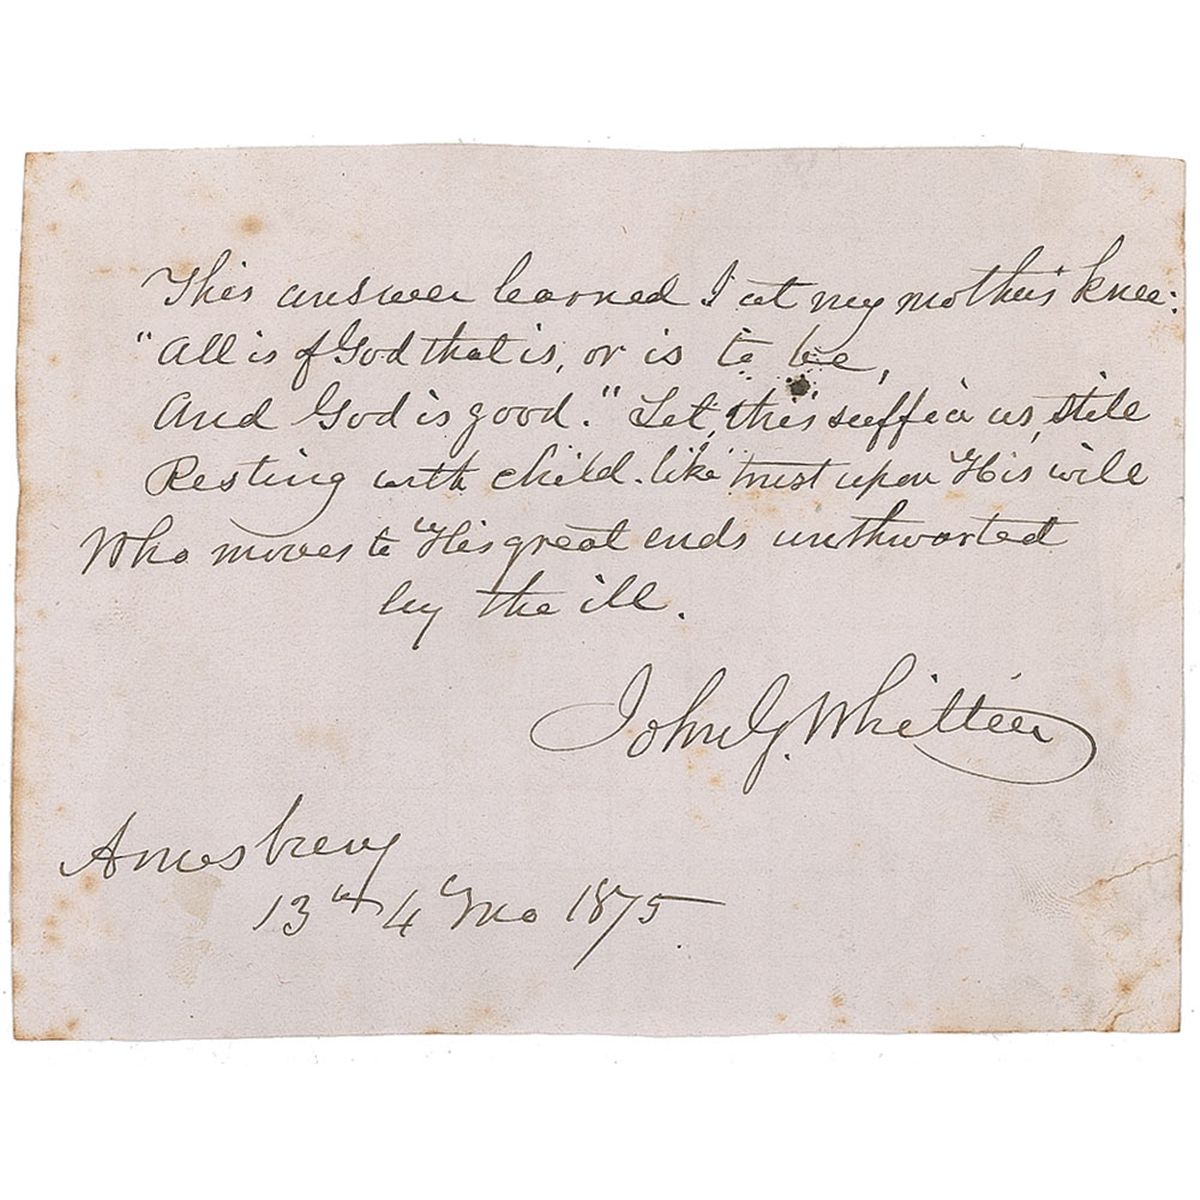 This answer learned I at my mother's knee:
"All is of God that is, or is to be,
And God is good." Let this suffice us, still
Resting with child-like trust upon His will
Who moves to His great ends unthwarted
by the ill.
John G. Whittier
Amesbury
13th 4 Mo 1875.